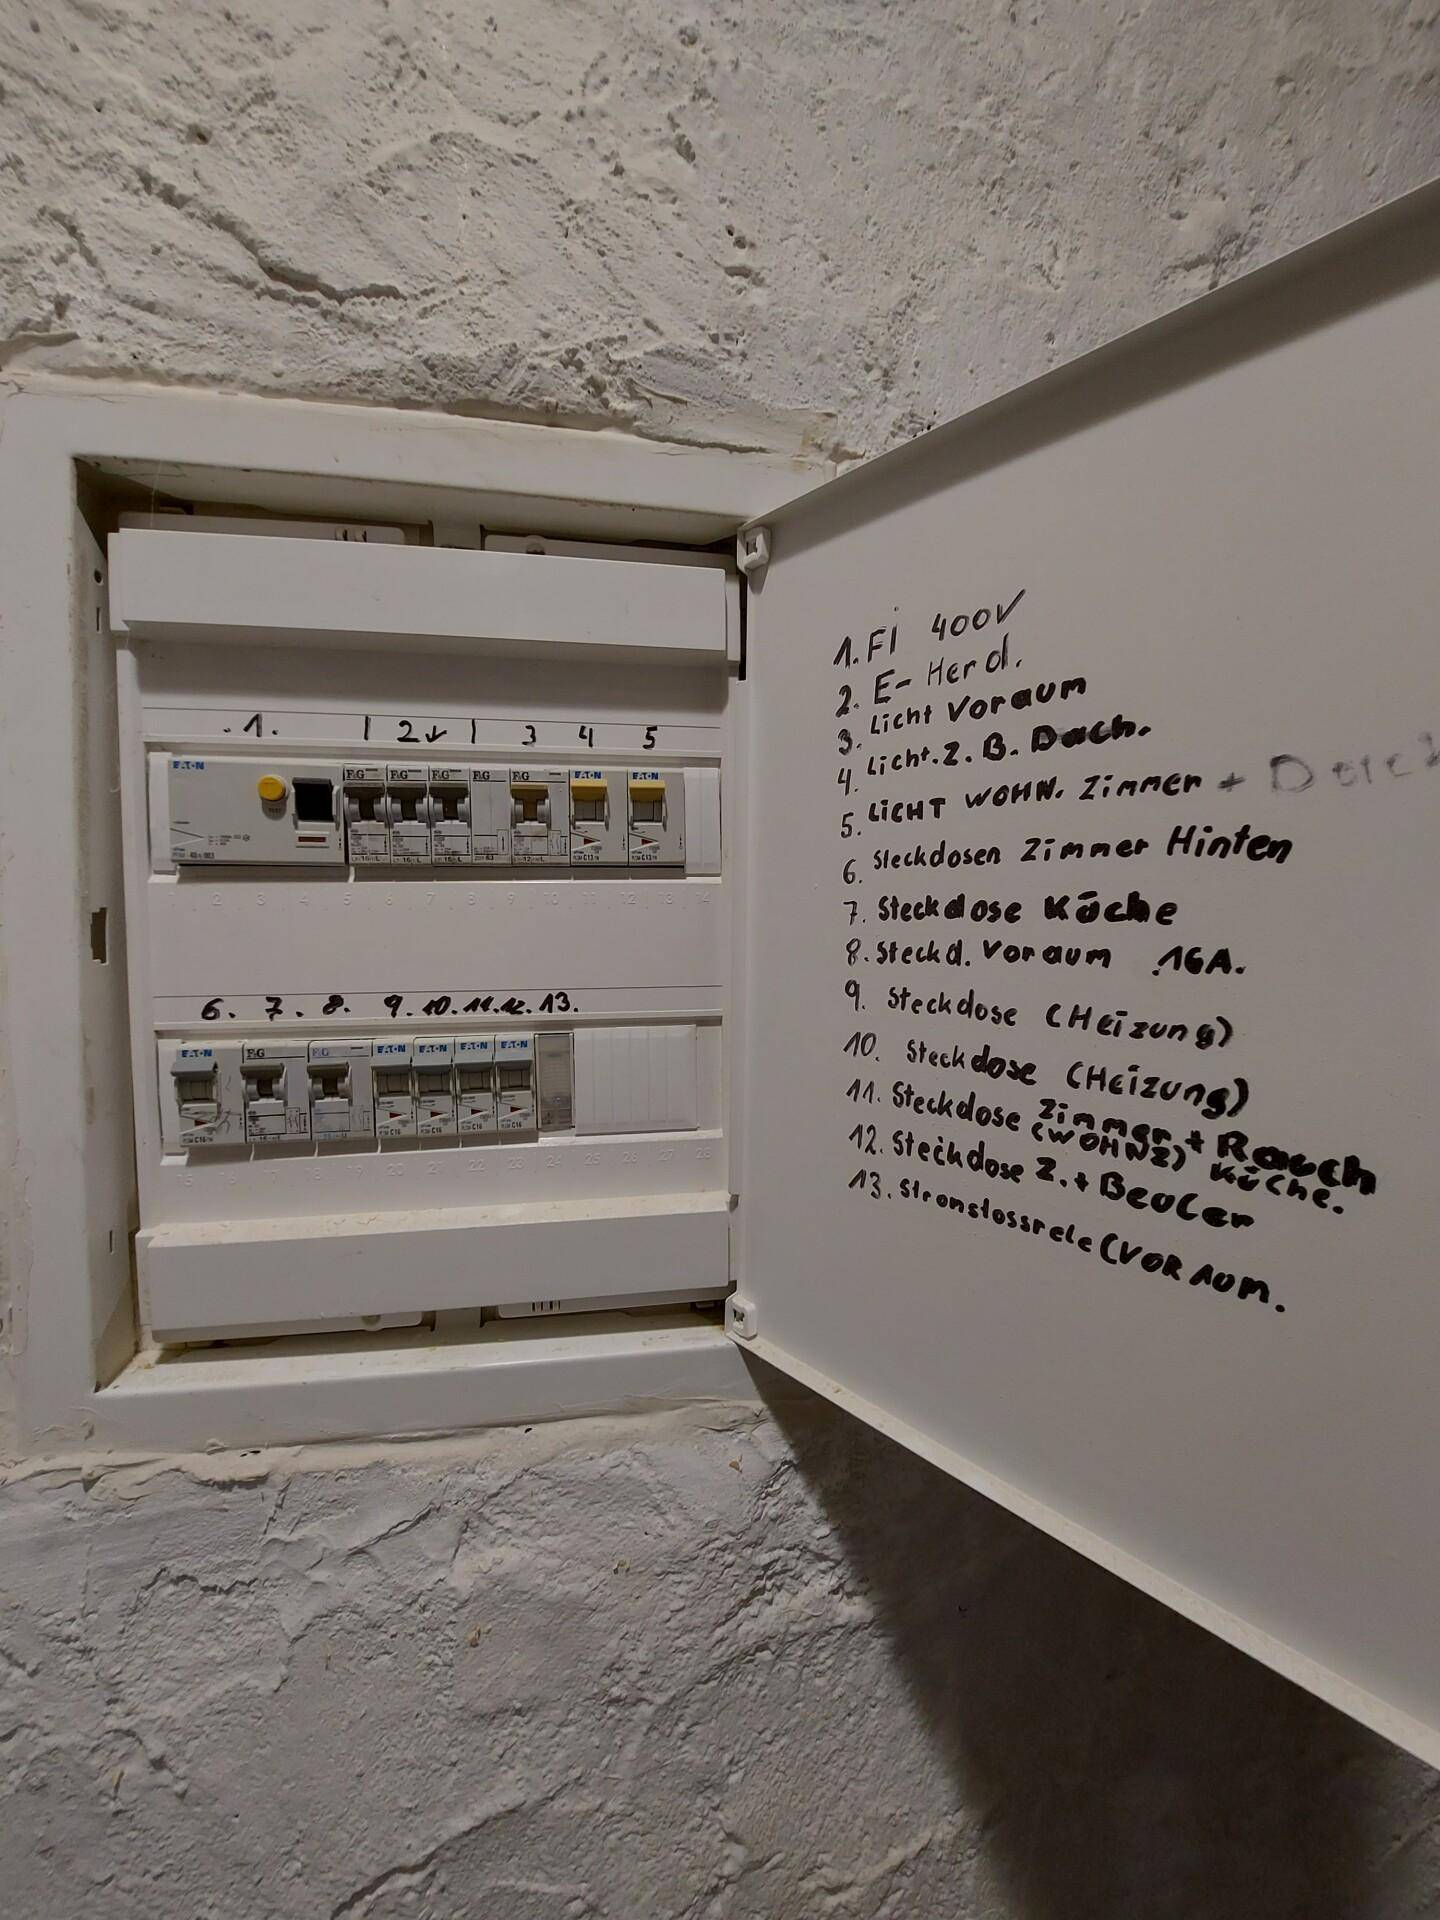 .1. | 2↓ | 3 4 5
EATON F&G F&G F&G F&G F&G EATON EATON
C13 C13
2 3 4 5 6 7 8 9 10 11 12 13 14
6. 7. 8. 9. 10. 11. 12. 13.
EATON F&G F&G EATON EATON EATON EATON
C16 C16 C16 C16 C16
1. Fi 400V
2. E- Herd.
3. Licht Voraum
4. Licht. Z. B. Dach.
5. LiCHT WOHN. Zimmer +
6. Steckdosen Zimmer Hinten
7. Steckdose Küche
8. Steckd. Voraum .16A.
9. Steckdose (Heizung)
10. Steckdose (Heizung)
11. Steckdose Zimmer + Rauch
(WOHNZ) Küche.
12. Steckdose Z. + BeuLer
13. Stromstossrele (VORAUM.